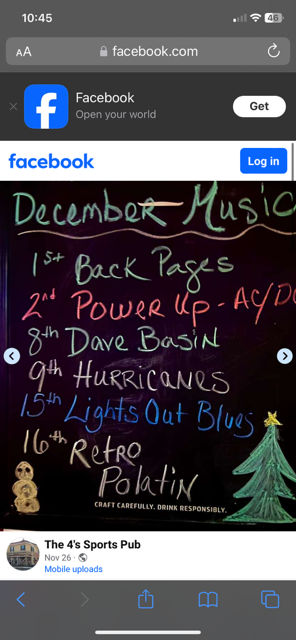 10:45
46
AA
facebook.com
Facebook
Open your world
Get
facebook
Log in
December Music
1st Back Pages
2nd Power Up - AC/DC
8th Dave Basin
9th Hurricanes
15th Lights Out Blues
16th Retro
Polatin
CRAFT CAREFULLY. DRINK RESPONSIBLY.
The 4's Sports Pub
Nov 26 ·
Mobile uploads